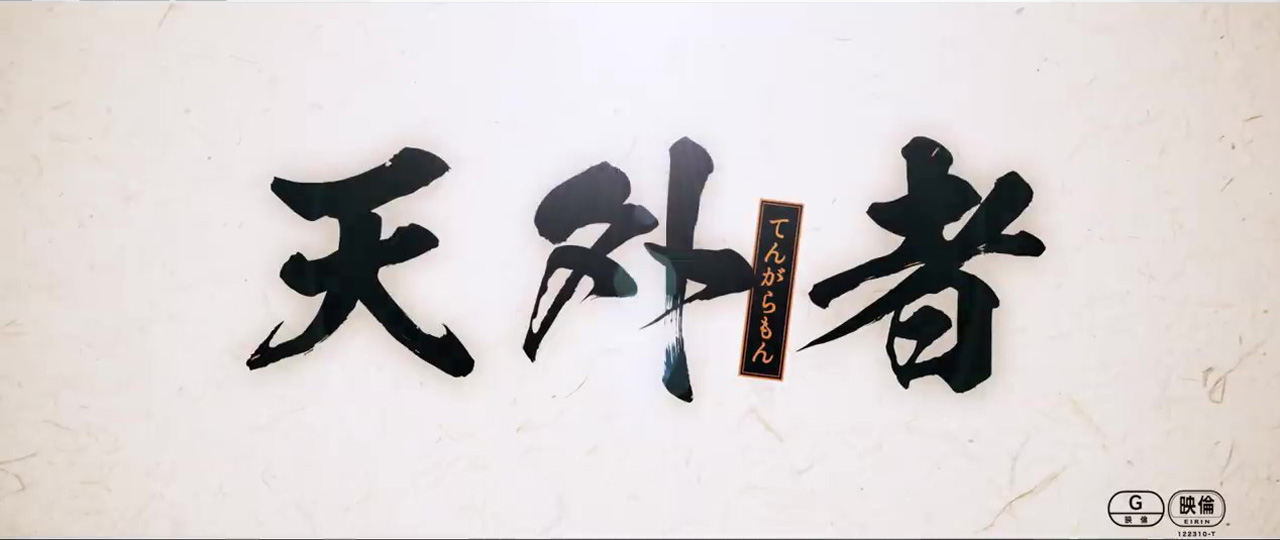 天外者
てんがらもん
G
映倫
映倫
EIRIN
122310-T